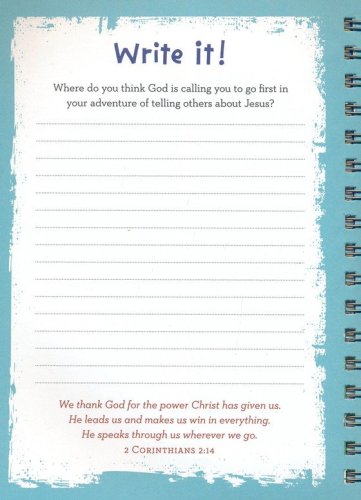 Write it!
Where do you think God is calling you to go first in
your adventure of telling others about Jesus?
We thank God for the power Christ has given us.
He leads us and makes us win in everything.
He speaks through us wherever we go.
2 CORINTHIANS 2:14